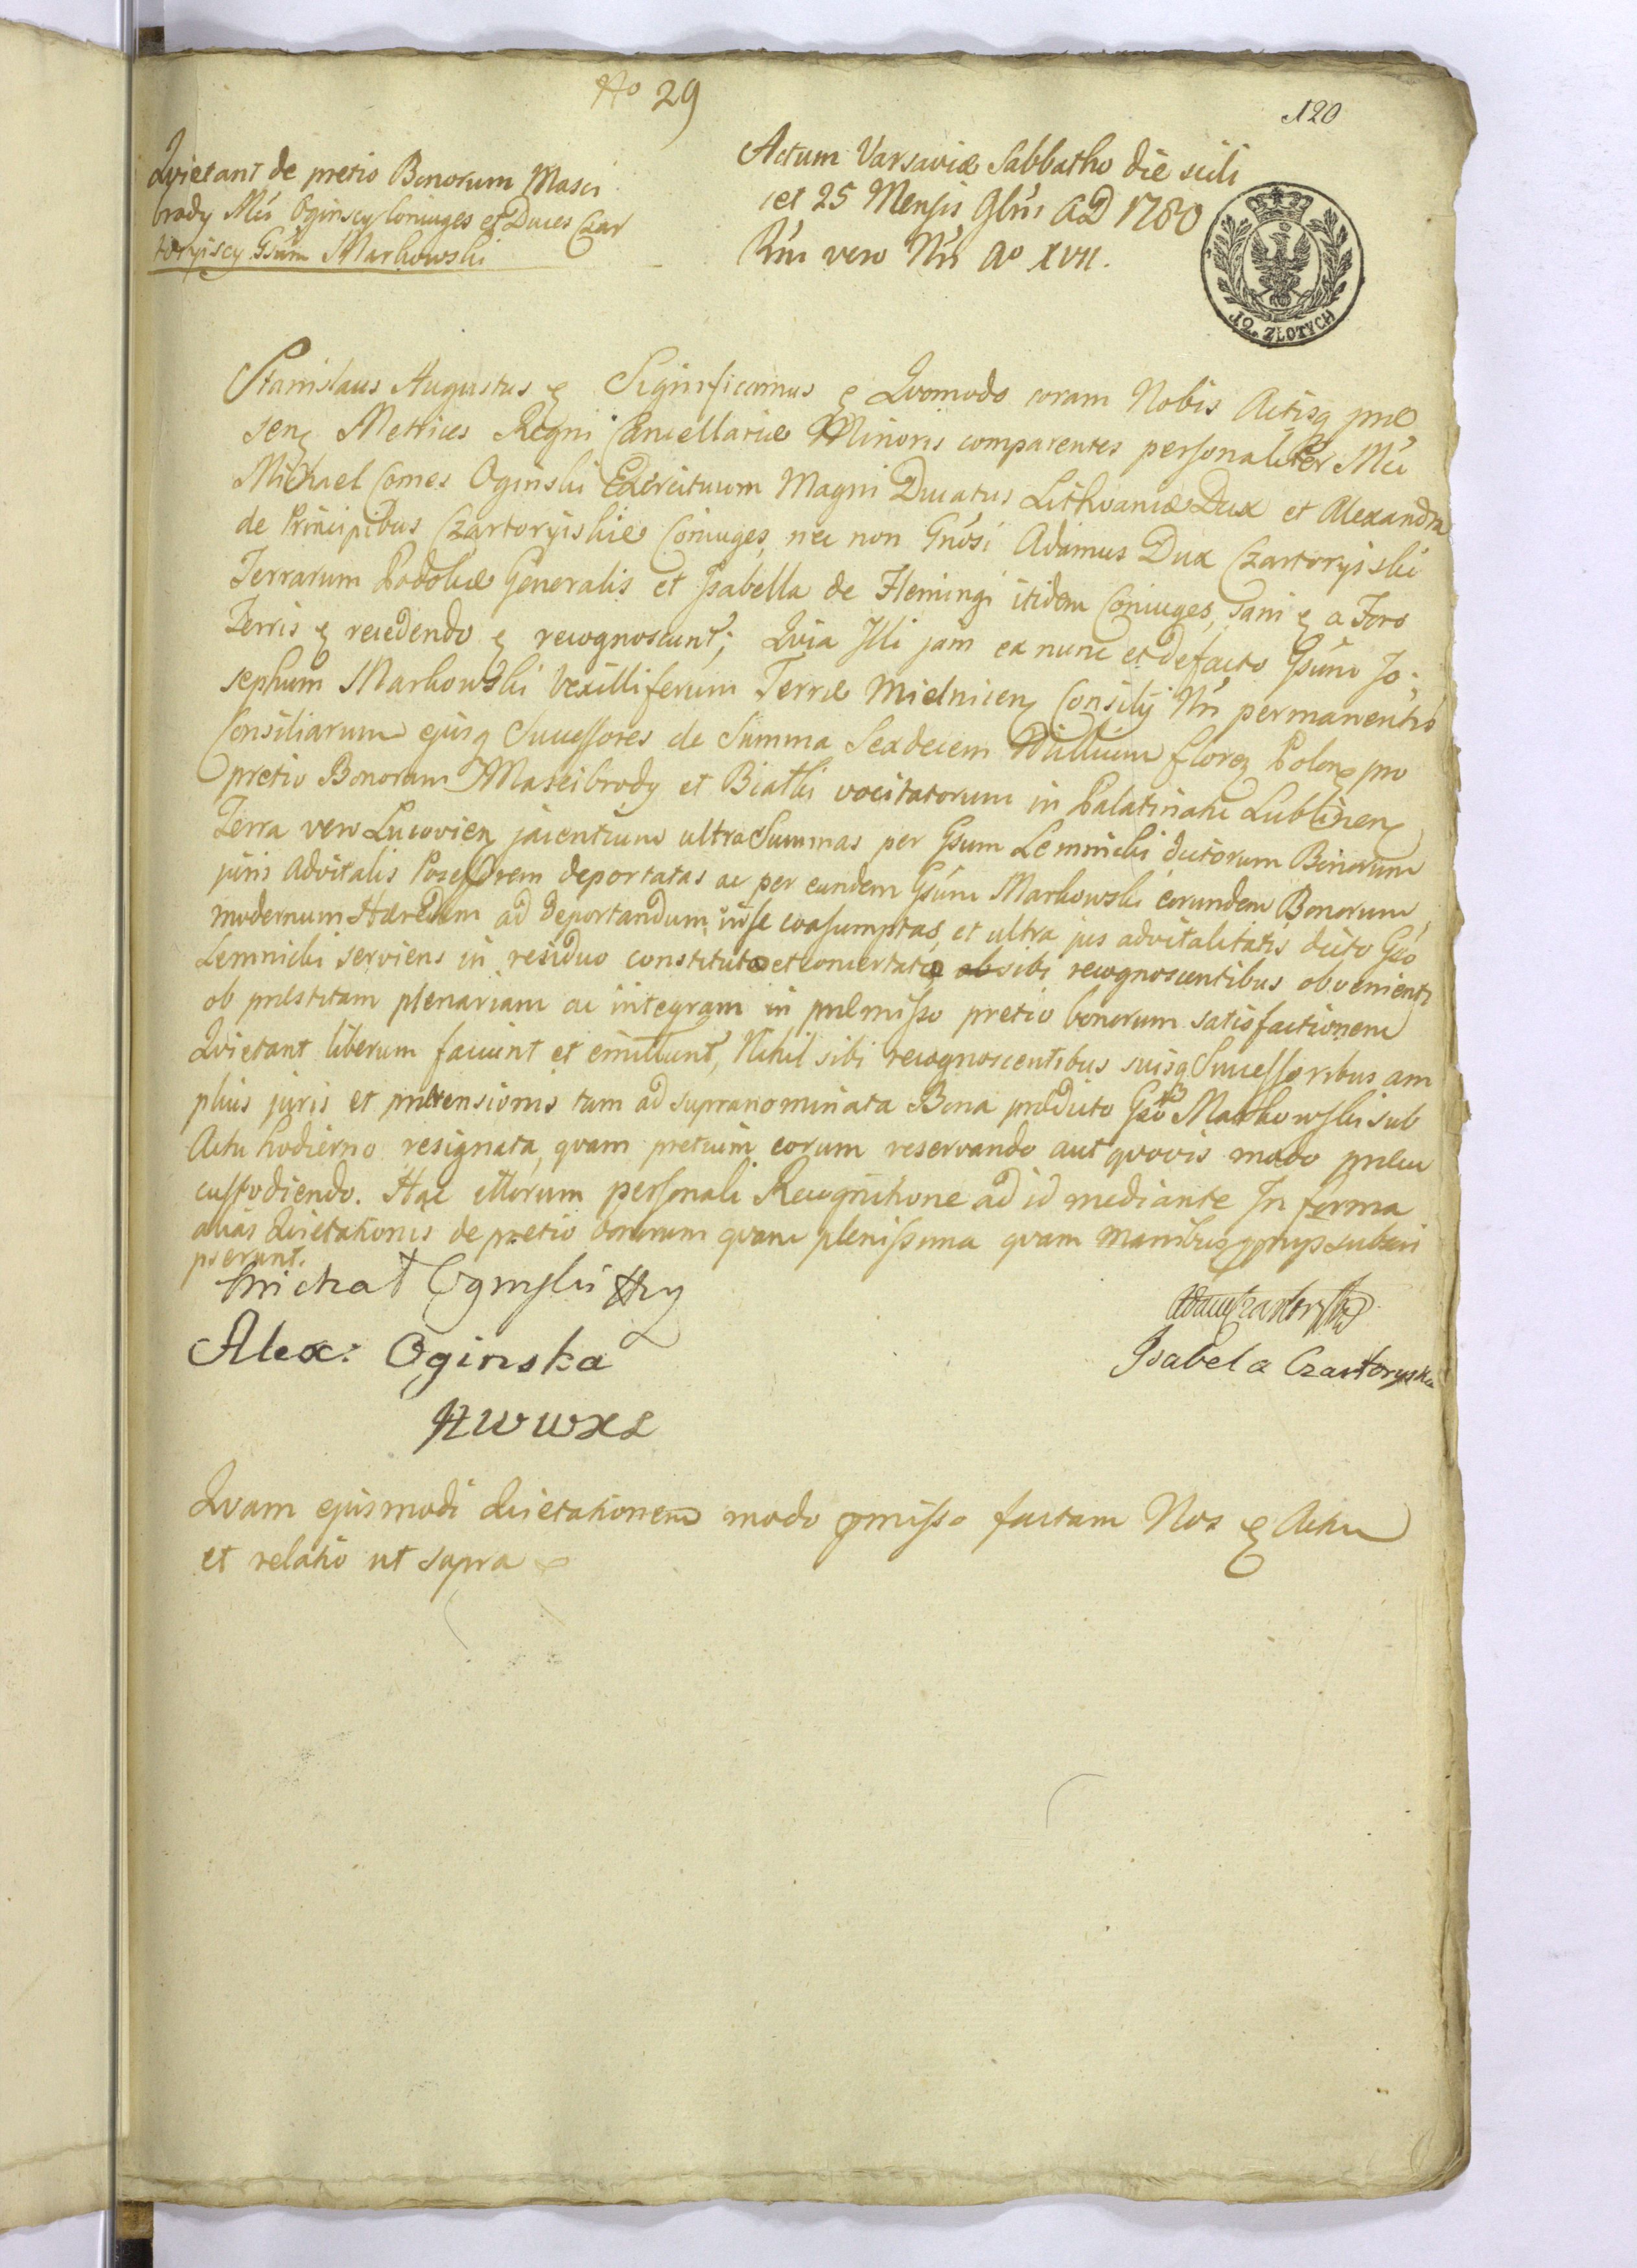 No 29
120
Qvietant de pretio Bonorum Masci
brody Mci Oginscy Coniuges et Duces Czar
toryiscy Gsum Markowski
Actum Varsaviæ Sabbatho die scili
cet 25 Mensis 9bris AD 1780
Rni vero Nri Ao XVII.
12. ZŁOTYCH
Stanislaus Augustus Significamus Qvomodo coram Nobis Actisq præ
sen Metrices Regni Cancellariæ Minoris comparentes personaliter Mci
Michael Comes Oginski Exercituum Magni Ducatus Lithvaniæ Dux et Alexandra
de Principibus Czartoryiskie Coniuges, nec non Gnosi Adamus Dux Czartoryiski
Terrarum Podoliæ Generalis et Isabella de Flemingi itidem Coniuges, Sani a Foro
Terris recedendo recognoscunt; Qvia Illi jam ex nunc et de facto Gsum Jo;
sephum Markowski Vexilliferum Terræ Mielnicen Consilij Nri permanentis
Consiliarum ejusq Successores de Summa Sexdecem Millium floren Polon pro
pretio Bonorum Mascibrody et Białki vocitatorum in Palatinatu Lublinen
Terra vero Lucovien jacentium ultra Summas per Gsum Lemnicki dictorum Bonorum
juris advitalis Possessorem deportatas ac per eundem Gsum Markowski eorundem Bonorum
modernum Hæredem ad deportandum in se coasumptas, et ultra jus advitalitatis dicto Gso
Lemnicki serviens in residuo constituta et concertata sibi recognoscentibus obvenienti
ob præstitam plenariam ac integram in præmisso pretio bonorum satisfactionem
Qvietant liberum faciunt et emittunt, Nihil sibi recognoscentibus suisq Successoribus am
plius juris et prætensionis tam ad supranominata Bona prædicto Gso Markowski sub
Actu hodierno resignata, qvam pretium eorum reservando aut qvovis modo præcu
custodiendo. Hac illorum personali Recognitione ad id mediante In forma
alias Qvietationis de pretio bonorum qvam plenissima qvam manibus pprijs subscri
pserunt.
Michał Ogiński
Alex: Oginska
HWWXL
Isabela Czartoryska
Qvam ejusmodi Qvietationem modo pmisso factam Nos Actu
et relatio ut supra